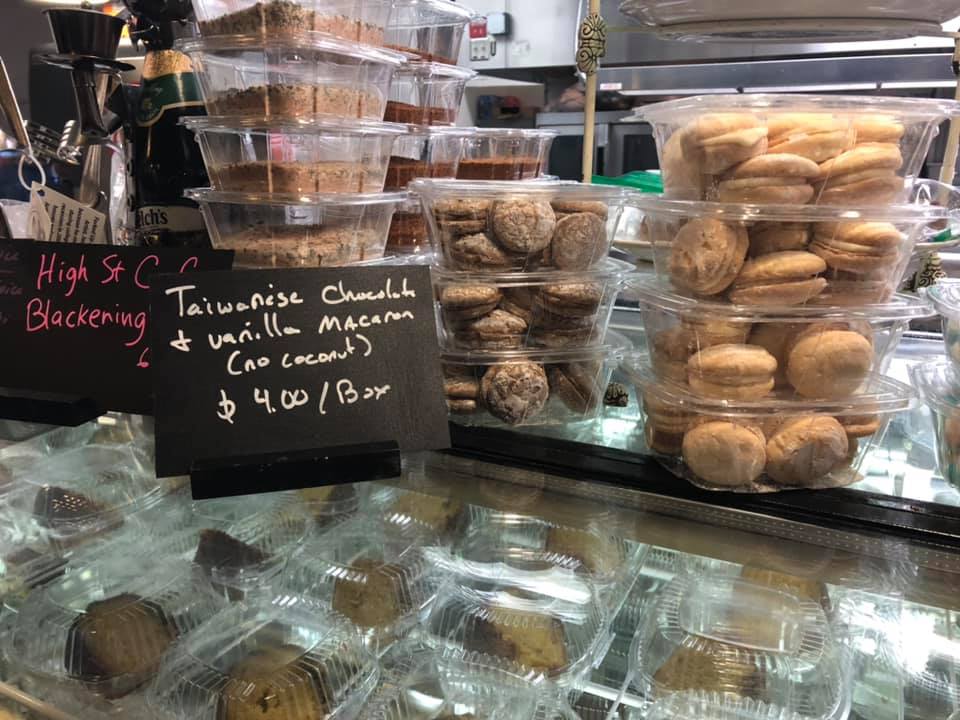 High St
Blackening
Taiwanise Chocolate
+ vanilla Macaron
(no coconut)
$ 4.00/Box
lch's